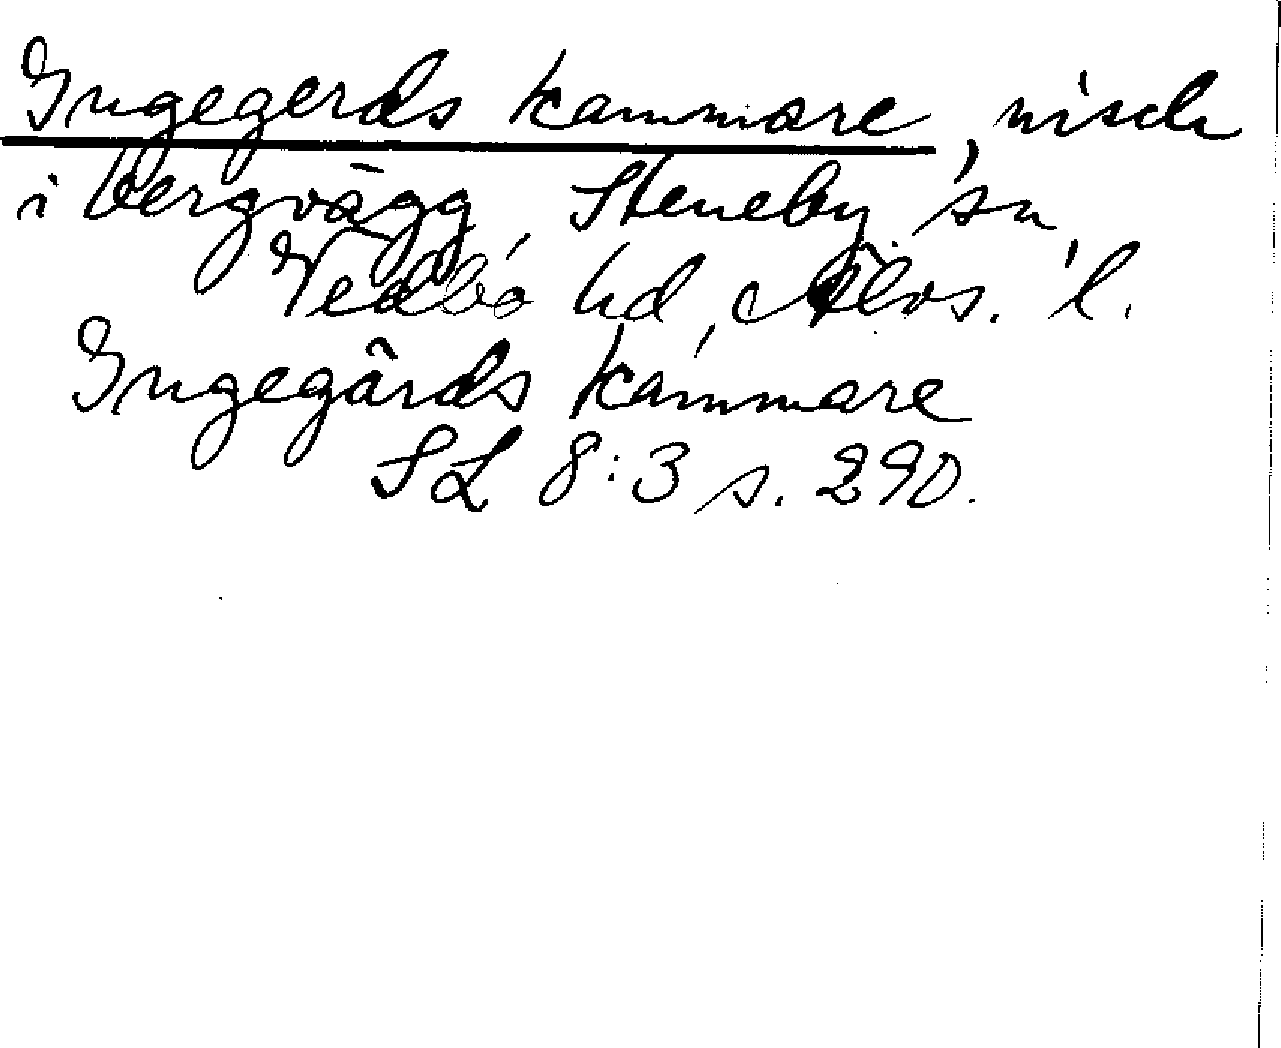 Ingegerds kammare, nisch
i bergvägg, Steneby sn,
Vedbo hd, Älvs. l.
Ingegärds kammare
SL 8:3 s. 290.